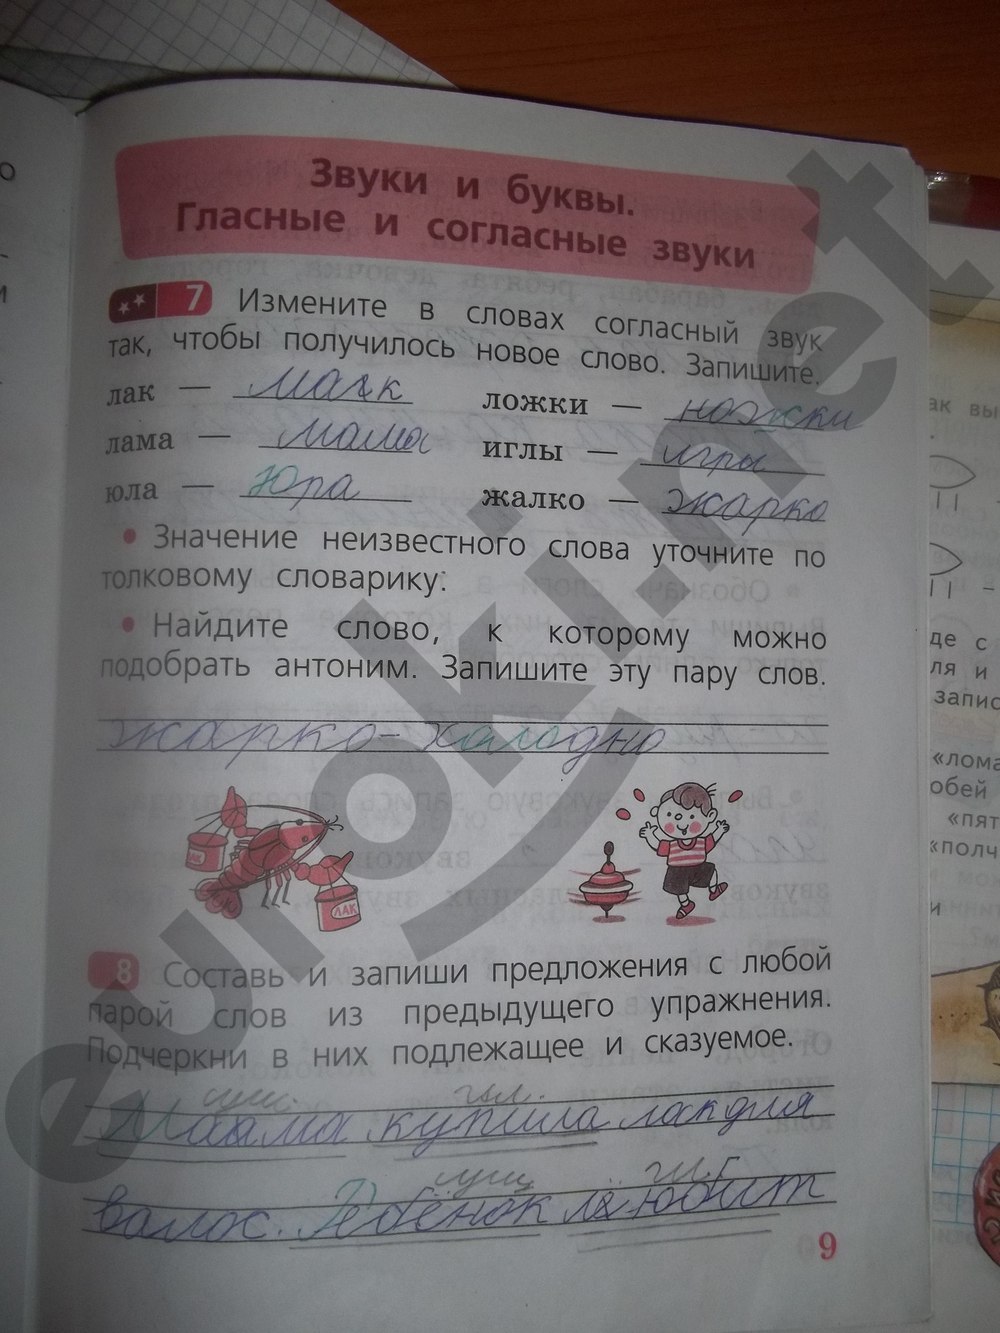 Звуки и буквы.
Гласные и согласные звуки
7 Измените в словах согласный звук
так, чтобы получилось новое слово. Запишите.
лак — мак ложки — ножки
лама — мама иглы — игры
юла — Юра жалко — жарко
• Значение неизвестного слова уточните по
толковому словарику.
• Найдите слово, к которому можно
подобрать антоним. Запишите эту пару слов.
жарко-холодно
ЛАК
ЛАК
8 Составь и запиши предложения с любой
парой слов из предыдущего упражнения.
Подчеркни в них подлежащее и сказуемое.
сущ. гл.
Мама купила лак для
сущ гл.
валос. Ребёнок любит
9
euroki.net
ак вы
де с
ля и
запис
«лома
обей
«пят
«полч
и